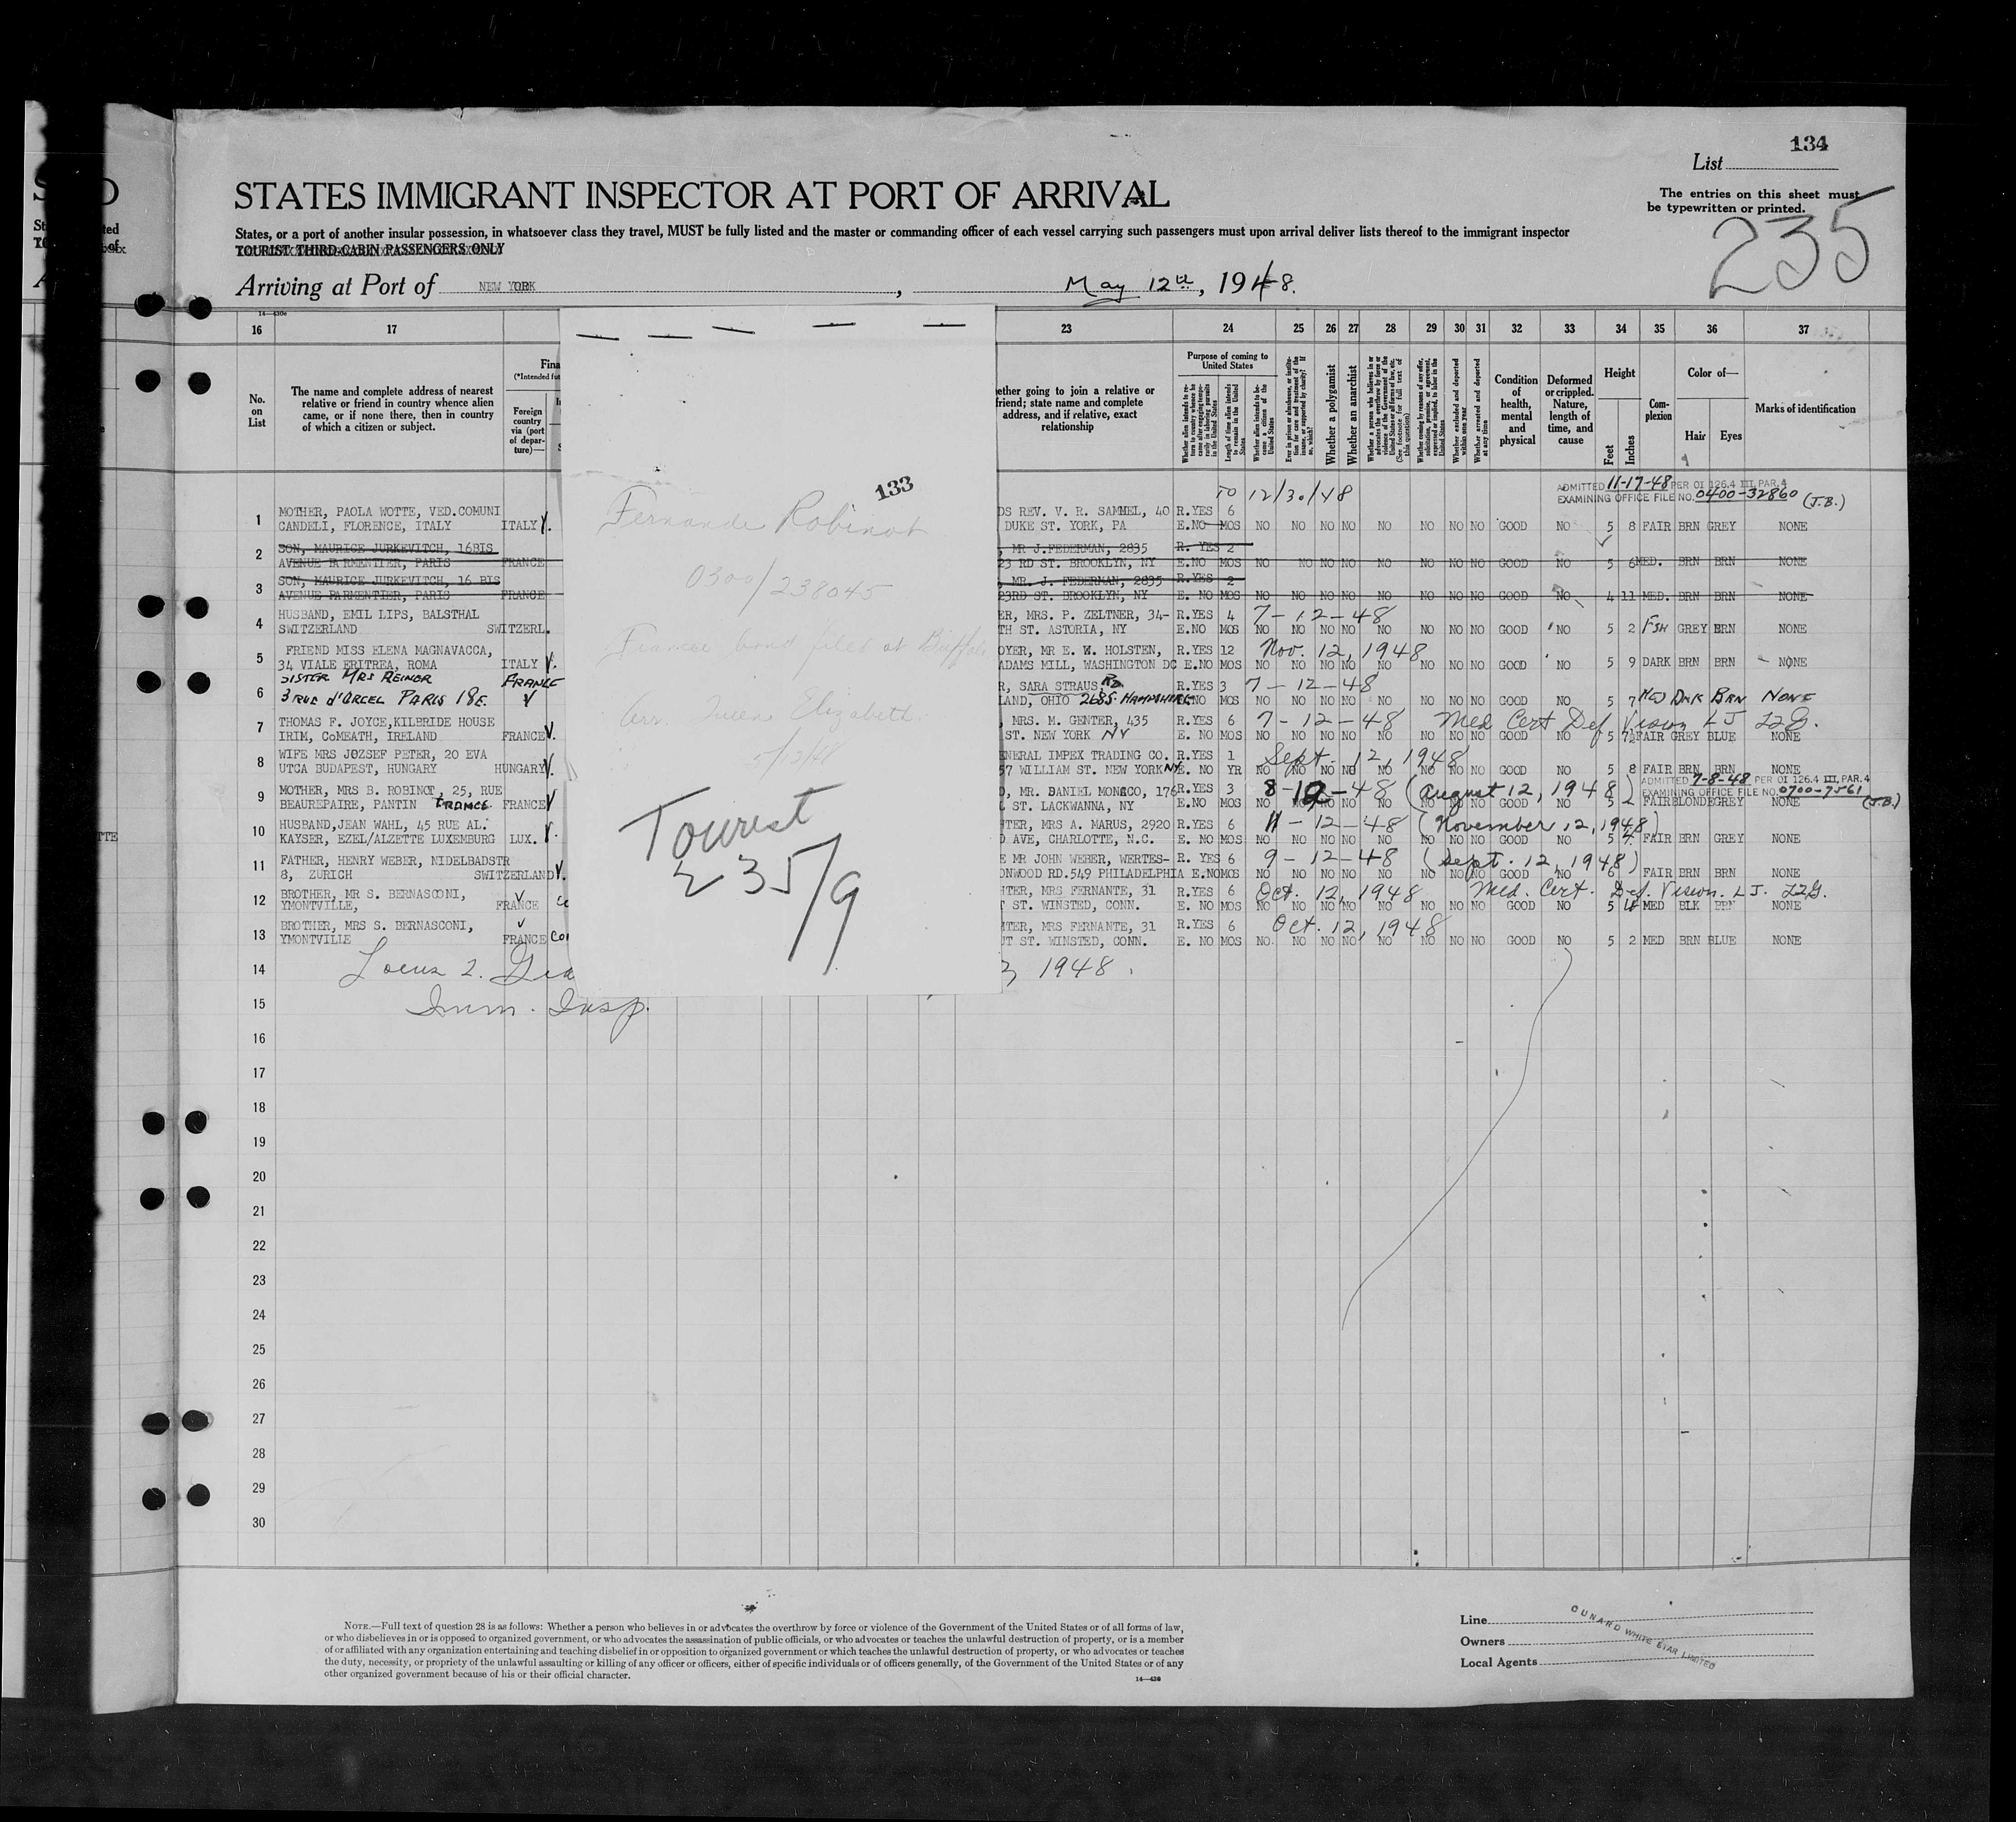 134
List
STATES IMMIGRANT INSPECTOR AT PORT OF ARRIVAL
The entries on this sheet must
be typewritten or printed.
235
States, or a port of another insular possession, in whatsoever class they travel, MUST be fully listed and the master or commanding officer of each vessel carrying such passengers must upon arrival deliver lists thereof to the immigrant inspector
TOURIST THIRD-CABIN PASSENGERS ONLY
Arriving at Port of NEW YORK, May 12th, 1948.
16 17 23 24 25 26 27 28 29 30 31 32 33 34 35 36 37
No. on List
The name and complete address of nearest
relative or friend in country whence alien
came, or if none there, then in country
of which a citizen or subject.
Foreign
country
via (port
of depar-
ture)—
ether going to join a relative or
friend; state name and complete
address, and if relative, exact
relationship
Purpose of coming to
United States
Whether a polygamist
Whether an anarchist
Condition
of
health,
mental
and
physical
Deformed
or crippled.
Nature,
length of
time, and
cause
Height
Feet
Inches
Com-
plexion
Color of—
Hair Eyes
Marks of identification
133
Fernande Robinot
0300/238045
Finance bond filed at Buffalo
Arr. Queen Elizabeth
Tourist
235/9
TO 12/30/48
ADMITTED 11-17-48 PER OI 126.4 III, PAR. 4
EXAMINING OFFICE FILE NO. 0400-32860 (J.B.)
1 MOTHER, PAOLA WOTTE, VED.COMUNI DS REV. V. R. SAMMEL, 40 R.YES 6
CANDELI, FLORENCE, ITALY ITALY DUKE ST. YORK, PA E.NO MOS NO NO NO NO NO NO NO NO GOOD NO 5 8 FAIR BRN GREY NONE
2 SON, MAURICE JURKEVITCH, 16BIS , MR J.FEDERMAN, 2835 R. YES 2
AVENUE PARMENTIER, PARIS FRANCE 23 RD ST. BROOKLYN, NY E.NO MOS NO NO NO NO NO NO NO NO GOOD NO 5 6 MED. BRN BRN NONE
3 SON, MAURICE JURKEVITCH, 16 BIS , MR. J. FEDERMAN, 2835 R.YES 2
AVENUE PARMENTIER, PARIS FRANCE 23RD ST. BROOKLYN, NY E. NO MOS NO NO NO NO NO NO NO NO GOOD NO 4 11 MED. BRN BRN NONE
4 HUSBAND, EMIL LIPS, BALSTHAL ER, MRS. P. ZELTNER, 34- R.YES 4 7-12-48
SWITZERLAND SWITZERL. TH ST. ASTORIA, NY E.NO MOS NO NO NO NO NO NO NO NO GOOD NO 5 2 FSH GREY BRN NONE
5 FRIEND MISS ELENA MAGNAVACCA, OYER, MR E. W. HOLSTEN, R.YES 12 Nov. 12, 1948
34 VIALE ERITREA, ROMA ITALY ADAMS MILL, WASHINGTON DC E.NO MOS NO NO NO NO NO NO NO NO GOOD NO 5 9 DARK BRN BRN NONE
6 SISTER MRS REINER FRANCE R, SARA STRAUS, RD R.YES 3 7-12-48
3 RUE d'ORCEL PARIS 18E. LAND, OHIO 2685 HAMPSHIRE NO MOS NO NO NO NO NO NO NO NO GOOD NO 5 7 MED DRK BRN NONE
7 THOMAS F. JOYCE,KILBRIDE HOUSE , MRS. M. GENTER, 435 R.YES 6 7-12-48 Med Cert Def Vision LJ 22G.
IRIM, CoMEATH, IRELAND FRANCE ST. NEW YORK NY E. NO MOS NO NO NO NO NO NO NO NO GOOD NO 5 7½ FAIR GREY BLUE NONE
8 WIFE MRS JOZSEF PETER, 20 EVA ENERAL IMPEX TRADING CO. R.YES 1 Sept. 12, 1948
UTCA BUDAPEST, HUNGARY HUNGARY 57 WILLIAM ST. NEW YORK NY E. NO YR NO NO NO NO NO NO NO NO GOOD NO 5 8 FAIR BRN BRN NONE
ADMITTED 7-8-48 PER OI 126.4 III, PAR. 4
EXAMINING OFFICE FILE NO. 0700-7561 (J.B.)
9 MOTHER, MRS B. ROBINOT, 25, RUE , MR. DANIEL MONACO, 176 R.YES 3 8-12-48 (August 12, 1948)
BEAUREPAIRE, PANTIN FRANCE FRANCE ST. LACKWANNA, NY E.NO MOS NO NO NO NO NO NO NO NO GOOD NO 5 2 FAIR BLONDE GREY NONE
10 HUSBAND,JEAN WAHL, 45 RUE AL. TER, MRS A. MARUS, 2920 R.YES 6 11-12-48 (November 12, 1948)
KAYSER, EZEL/ALZETTE LUXEMBURG LUX. D AVE, CHARLOTTE, N.C. E. NO MOS NO NO NO NO NO NO NO NO GOOD NO 5 4 FAIR BRN GREY NONE
11 FATHER, HENRY WEBER, NIDELBADSTR E MR JOHN WEBER, WERTES- R. YES 6 9-12-48 (Sept. 12, 1948)
8, ZURICH SWITZERLAND ONWOOD RD.549 PHILADELPHIA E.NO MOS NO NO NO NO NO NO NO NO GOOD NO 6 FAIR BRN BRN NONE
12 BROTHER, MR S. BERNASCONI, HTER, MRS FERNANTE, 31 R.YES 6 Oct. 12, 1948 Med. Cert. Def. Vision. LJ. 22G.
YMONTVILLE, FRANCE T ST. WINSTED, CONN. E. NO MOS NO NO NO NO NO NO NO NO GOOD NO 5 MED BLK BRN NONE
13 BROTHER, MRS S. BERNASCONI, HTER, MRS FERNANTE, 31 R.YES 6 Oct. 12, 1948
YMONTVILLE FRANCE UT ST. WINSTED, CONN. E. NO MOS NO NO NO NO NO NO NO NO GOOD NO 5 2 MED BRN BLUE NONE
14 1948.
15 Imm. Insp.
16
17
18
19
20
21
22
23
24
25
26
27
28
29
30
NOTE.—Full text of question 28 is as follows: Whether a person who believes in or advocates the overthrow by force or violence of the Government of the United States or of all forms of law,
or who disbelieves in or is opposed to organized government, or who advocates the assassination of public officials, or who advocates or teaches the unlawful destruction of property, or is a member
of or affiliated with any organization entertaining and teaching disbelief in or opposition to organized government or which teaches the unlawful destruction of property, or who advocates or teaches
the duty, necessity, or propriety of the unlawful assaulting or killing of any officer or officers, either of specific individuals or of officers generally, of the Government of the United States or of any
other organized government because of his or their official character.
14—430
Line
Owners
Local Agents
CUNARD WHITE STAR LIMITED